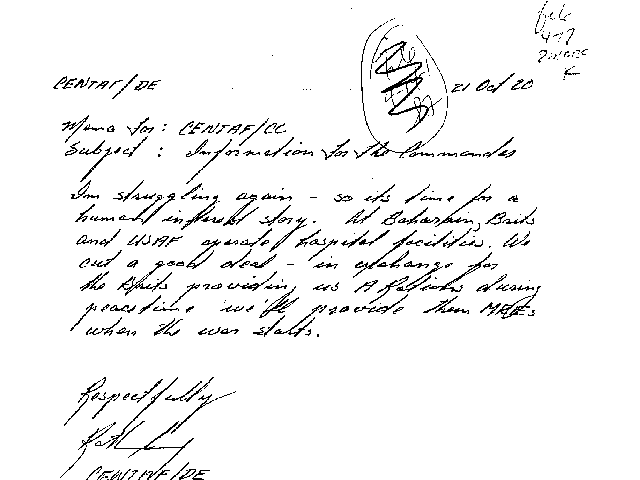 file
477
CENTAF/DE
21 Oct 20
Memo for: CENTAF/CC
Subject: Information for the Commander
I'm struggling again - so its time for a
human interest story. At Bahrain, Brits
and USAF operate hospital facilities. We
cut a good deal - in exchange for
the Brits providing us A Rations during
peacetime we'll provide them MREs
when the war starts.
Respectfully
CENTAF/DE